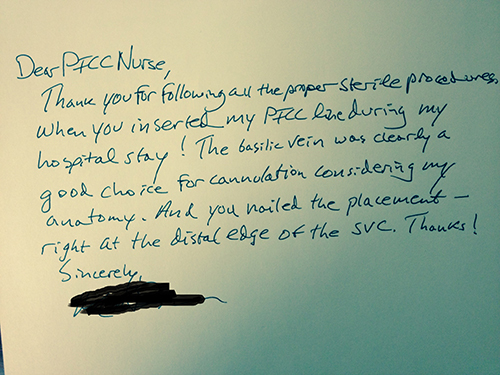 Dear PICC Nurse,
Thank you for following all the proper sterile procedures,
when you inserted my PICC line during my
hospital stay! The basilic vein was clearly a
good choice for cannulation considering my
anatomy. And you nailed the placement –
right at the distal edge of the SVC. Thanks!
Sincerely,